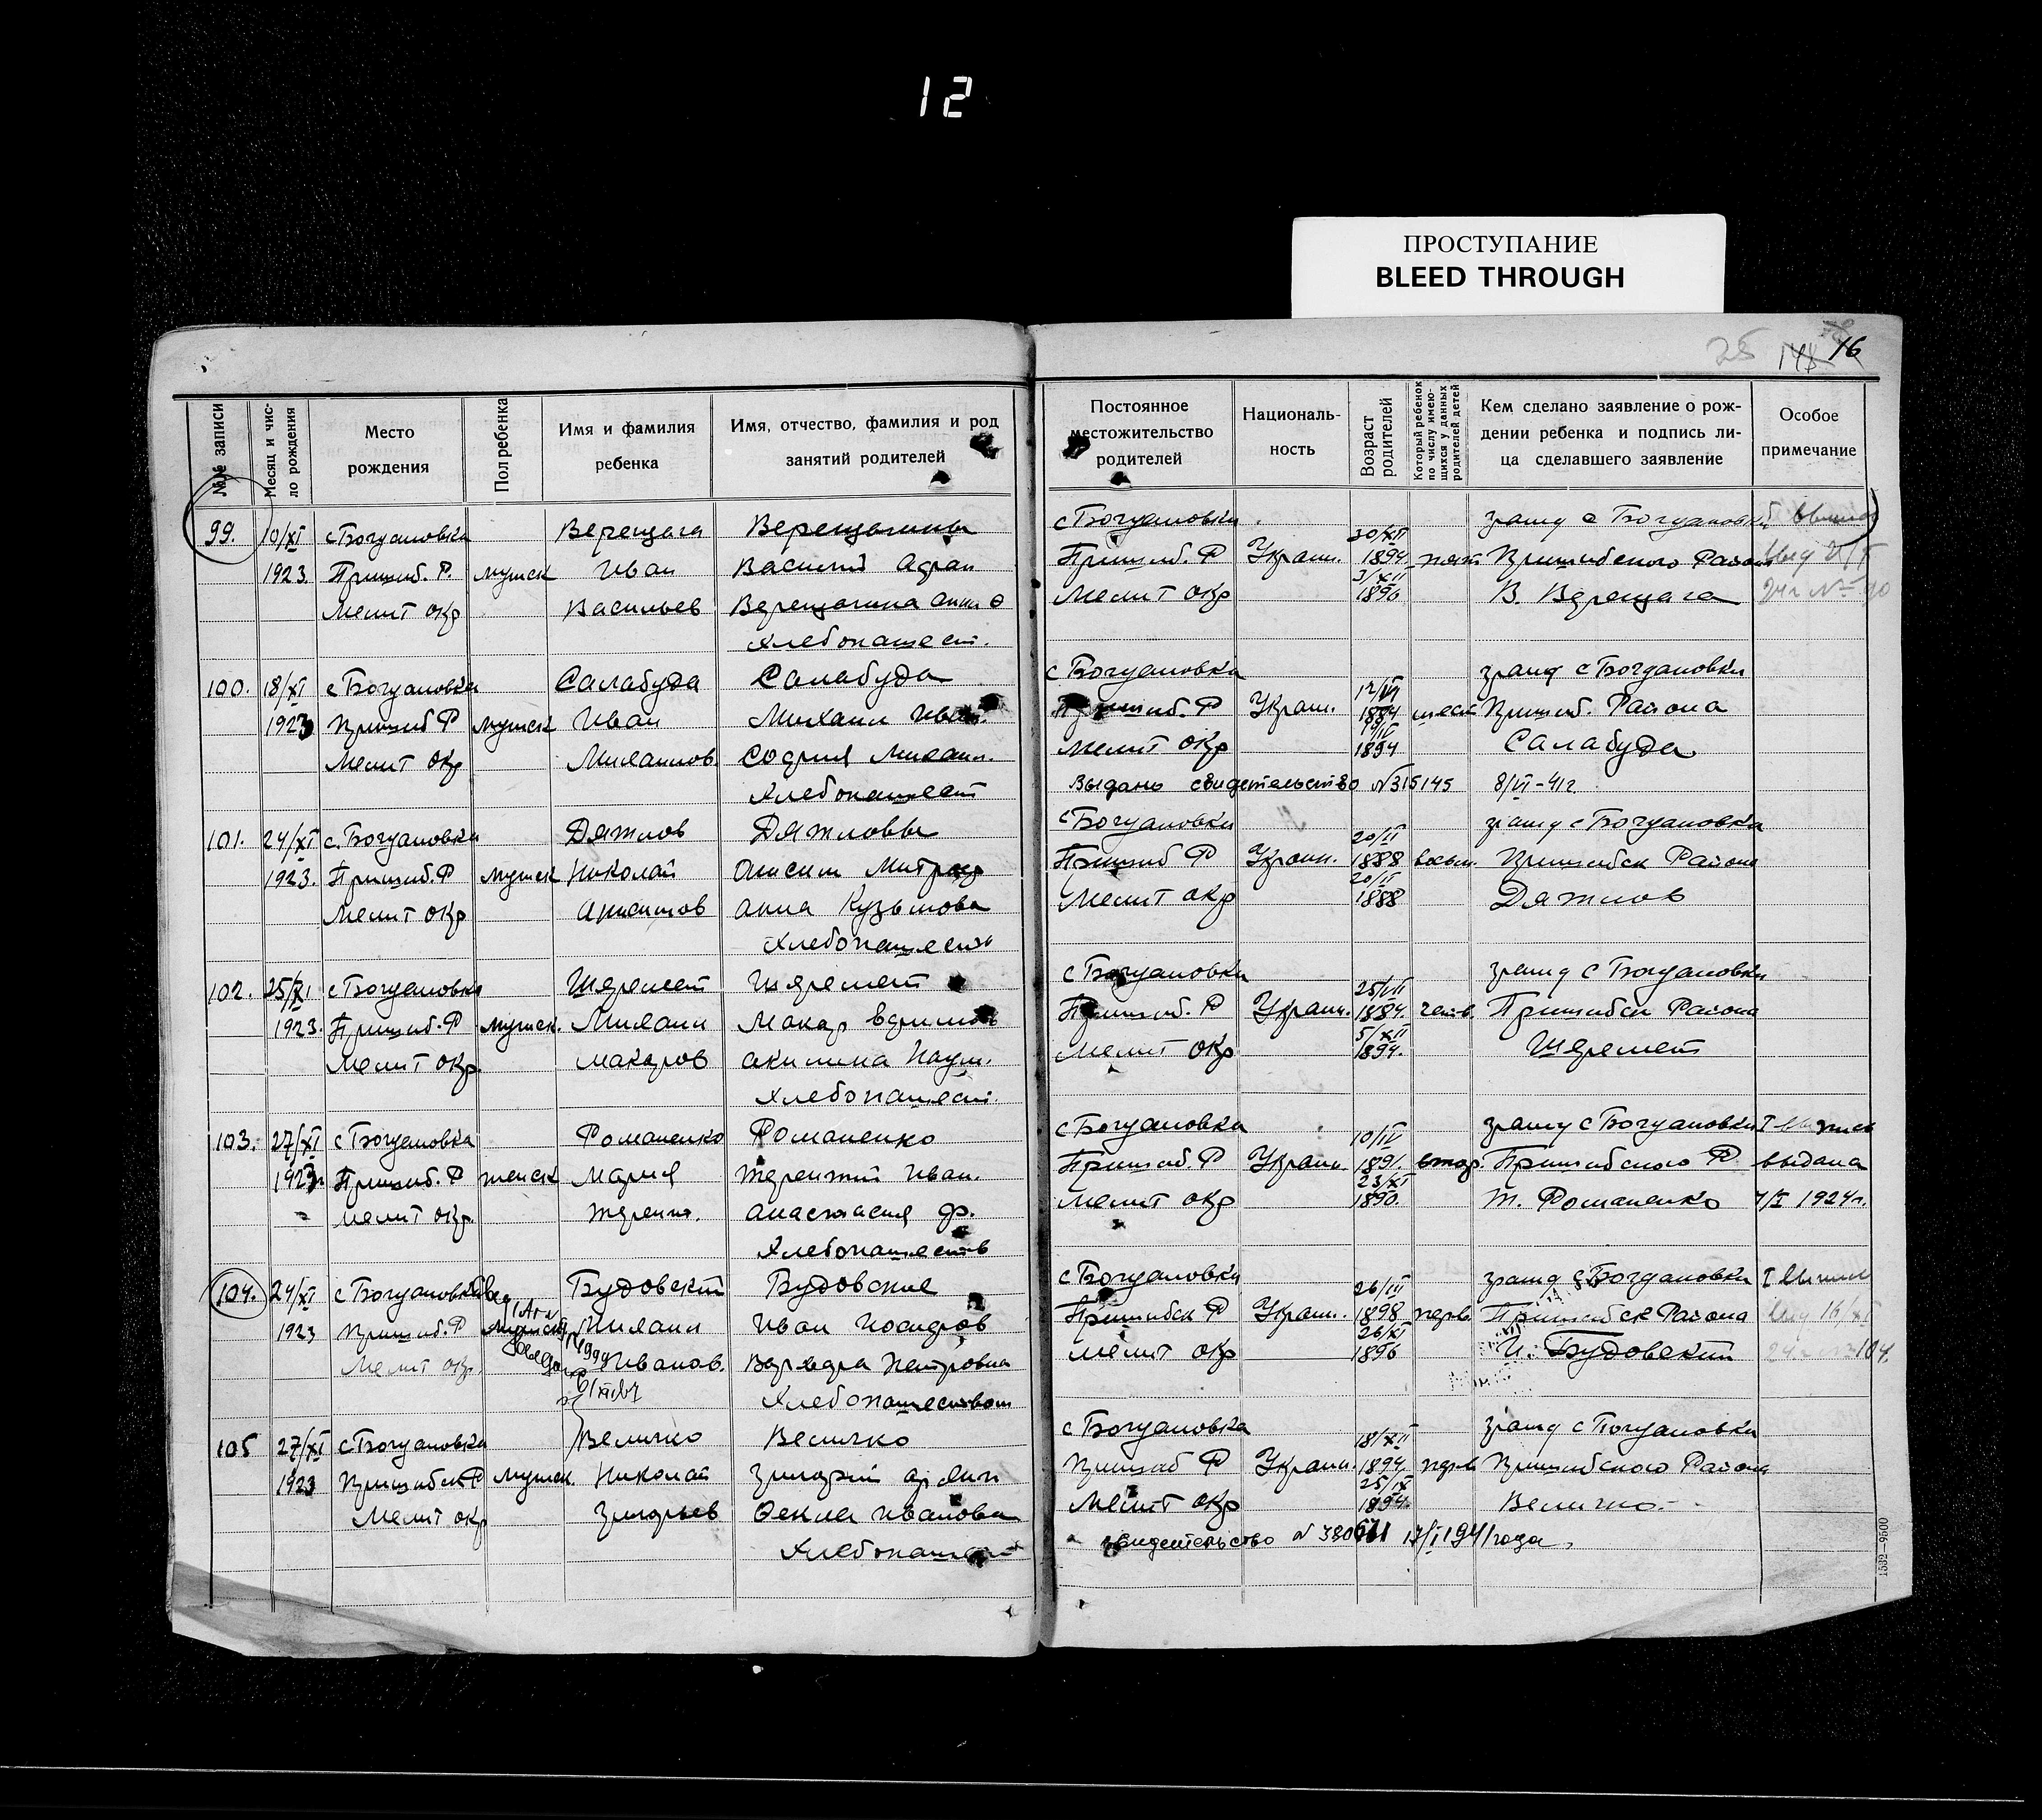 12
ПРОСТУПАНИЕ
BLEED THROUGH
25 16
№№ записи
Месяц и чис-
ло рождения
Место
рождения
Пол ребенка
Имя и фамилия
ребенка
Имя, отчество, фамилия и род
занятий родителей
Постоянное
местожительство
родителей
Националь-
ность
Возраст
родителей
Который ребенок
по числу имею-
щихся у данных
родителей детей
Кем сделано заявление о рож-
дении ребенка и подпись ли-
ца сделавшего заявление
Особое
примечание
99. 10/XI с Богдановка Верещага Верещагины с Богдановки гражд с Богдановки
1923. Пришиб. Р. мужск Иван Василий Адриан Пришиб. Р Украин. 30/XII 1894 пят Пришибского Района
Мелит окр Васильев Верещагина Анна Ѳ Мелит окр 3/XII 1896 В. Верещага
Хлебопашест.
100. 18/XI с Богдановка Салабуда Салабуда с Богдановка гражд с Богдановки
1923 Пришиб Р мужск Иван Михаил Иван. Пришиб. Р Украин. 1884 шест Пришиб. Района
Мелит окр Михаилов. София Михаил. Мелит окр 1894 Салабуда
Хлебопашест Выдано свидетельство №315145 8/VI-41г
101. 24/XI с. Богдановка Дятлов Дятловы с Богдановки гражд с Богдановка
1923. Пришиб. Р мужск Николай Анисим Митроф Пришиб Р Украин. 20/II 1888 восьм. Пришибск Района
Мелит окр Анисимов Анна Кузьмова Мелит окр 20/II 1888 Дятлов
Хлебопашеств
102. 25/XI с Богдановка Шеремет Шеремет с Богдановки гражд с Богдановки
1923. Пришиб. Р мужск. Михаил Макар Пришиб. Р Украин. 25/VII 1884. четв. Пришибск Района
Мелит окр. Макаров Акилина Наум. Мелит окр 5/XII 1894. Шеремет
Хлебопашест.
103. 27/XI с Богдановка Романенко Романенко с Богдановка гражд с Богдановки
1923. Пришиб. Р женск Мария Терентий Иван. Пришиб. Р Украин 10/IV 1891. втор. Пришибского Р выдана
Мелит окр. Терент. Анастасия Ф. Мелит окр 23/XI 1890. Т. Романенко 1924г.
Хлебопашеств
104. 24/XI с Богдановка Будовский Будовские с Богдановки гражд с Богдановки
1923 Пришиб. Р мужск Михаил Иван Иосифов Пришибск Р Украин. 26/III 1898 перв. Пришибск Района
Мелит окр. Иванов. Варвара Петровна Мелит окр 26/XI 1896 И. Будовский 104.
Хлебопашеством
105 27/XI с Богдановка Величко Величко с Богдановка гражд с Богдановки
1923 Пришибск Р мужск. Николай Григорий Пришиб Р Украин. 18/XII 1894 перв Пришибского Района
Мелит окр Григорьев Ѳекла Иванова Мелит окр 25/IX 1894. Величко
Хлебопашест свидетельство 1941 года.
1532—9500